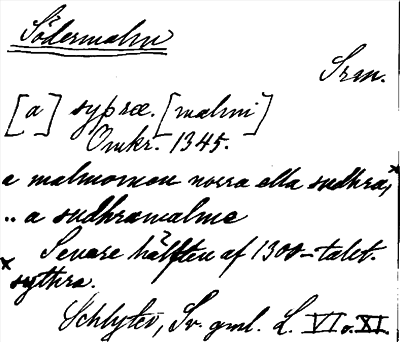 Södermalm
Srm.
[a] sypræ. [malmi]
Omkr. 1345.
a malmomen norra ella sudhra,x
.. a sudhramalme
Senare hälften af 1300-talet.
x sythra.
Schlyter, Sv. gml. L. VI o. XI.